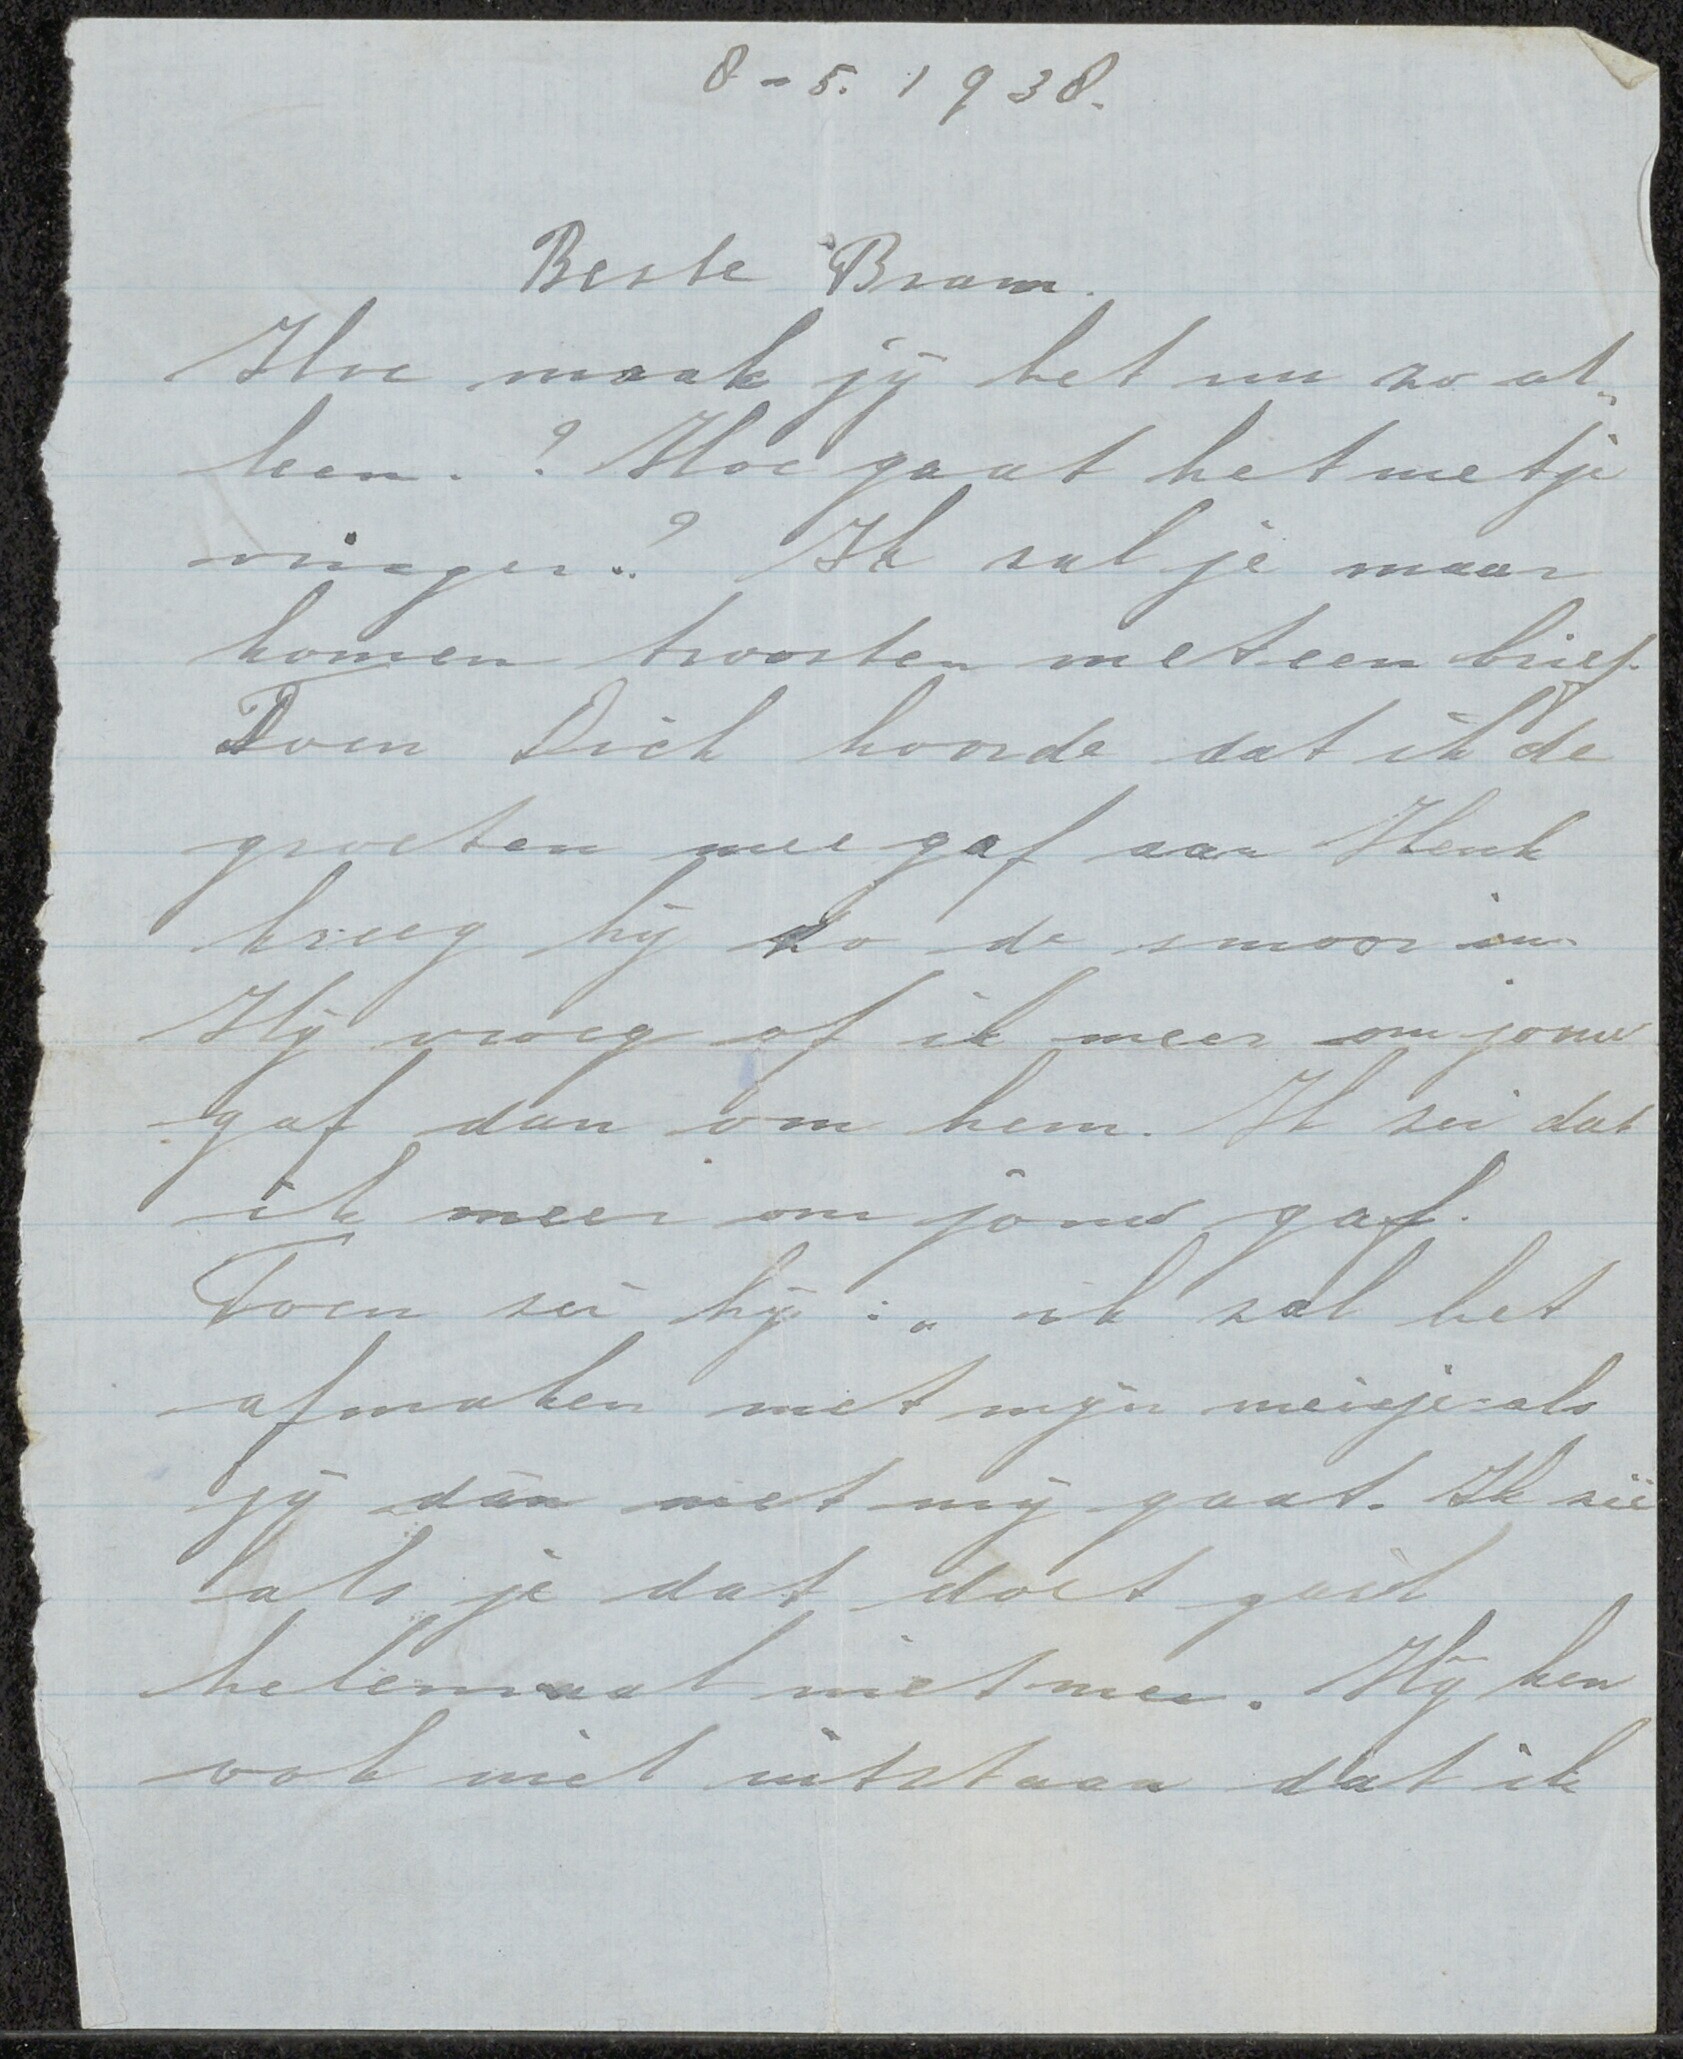 8-5. 1938.
Beste Bram.
Hoe maak jij het nu zo al„
leen.? Hoe gaat het met je
vinger.? Ik zal je maar
komen troosten met een brief.
Toen Dick hoorde dat ik de
groeten mee gaf aan Henk
kreeg hij zo de smoor in.
Hij vroeg of ik meer om jouw
gaf dan om hem. Ik zei dat
ik meer om jouw gaf.
Toen zei hij: „ik zal het
afmaken met mijn meisje als
jij dan met mij gaat. Ik zei
als je dat doet ga ik
helemaal niet mee. Hij ken
ook niet uitstaan dat ik